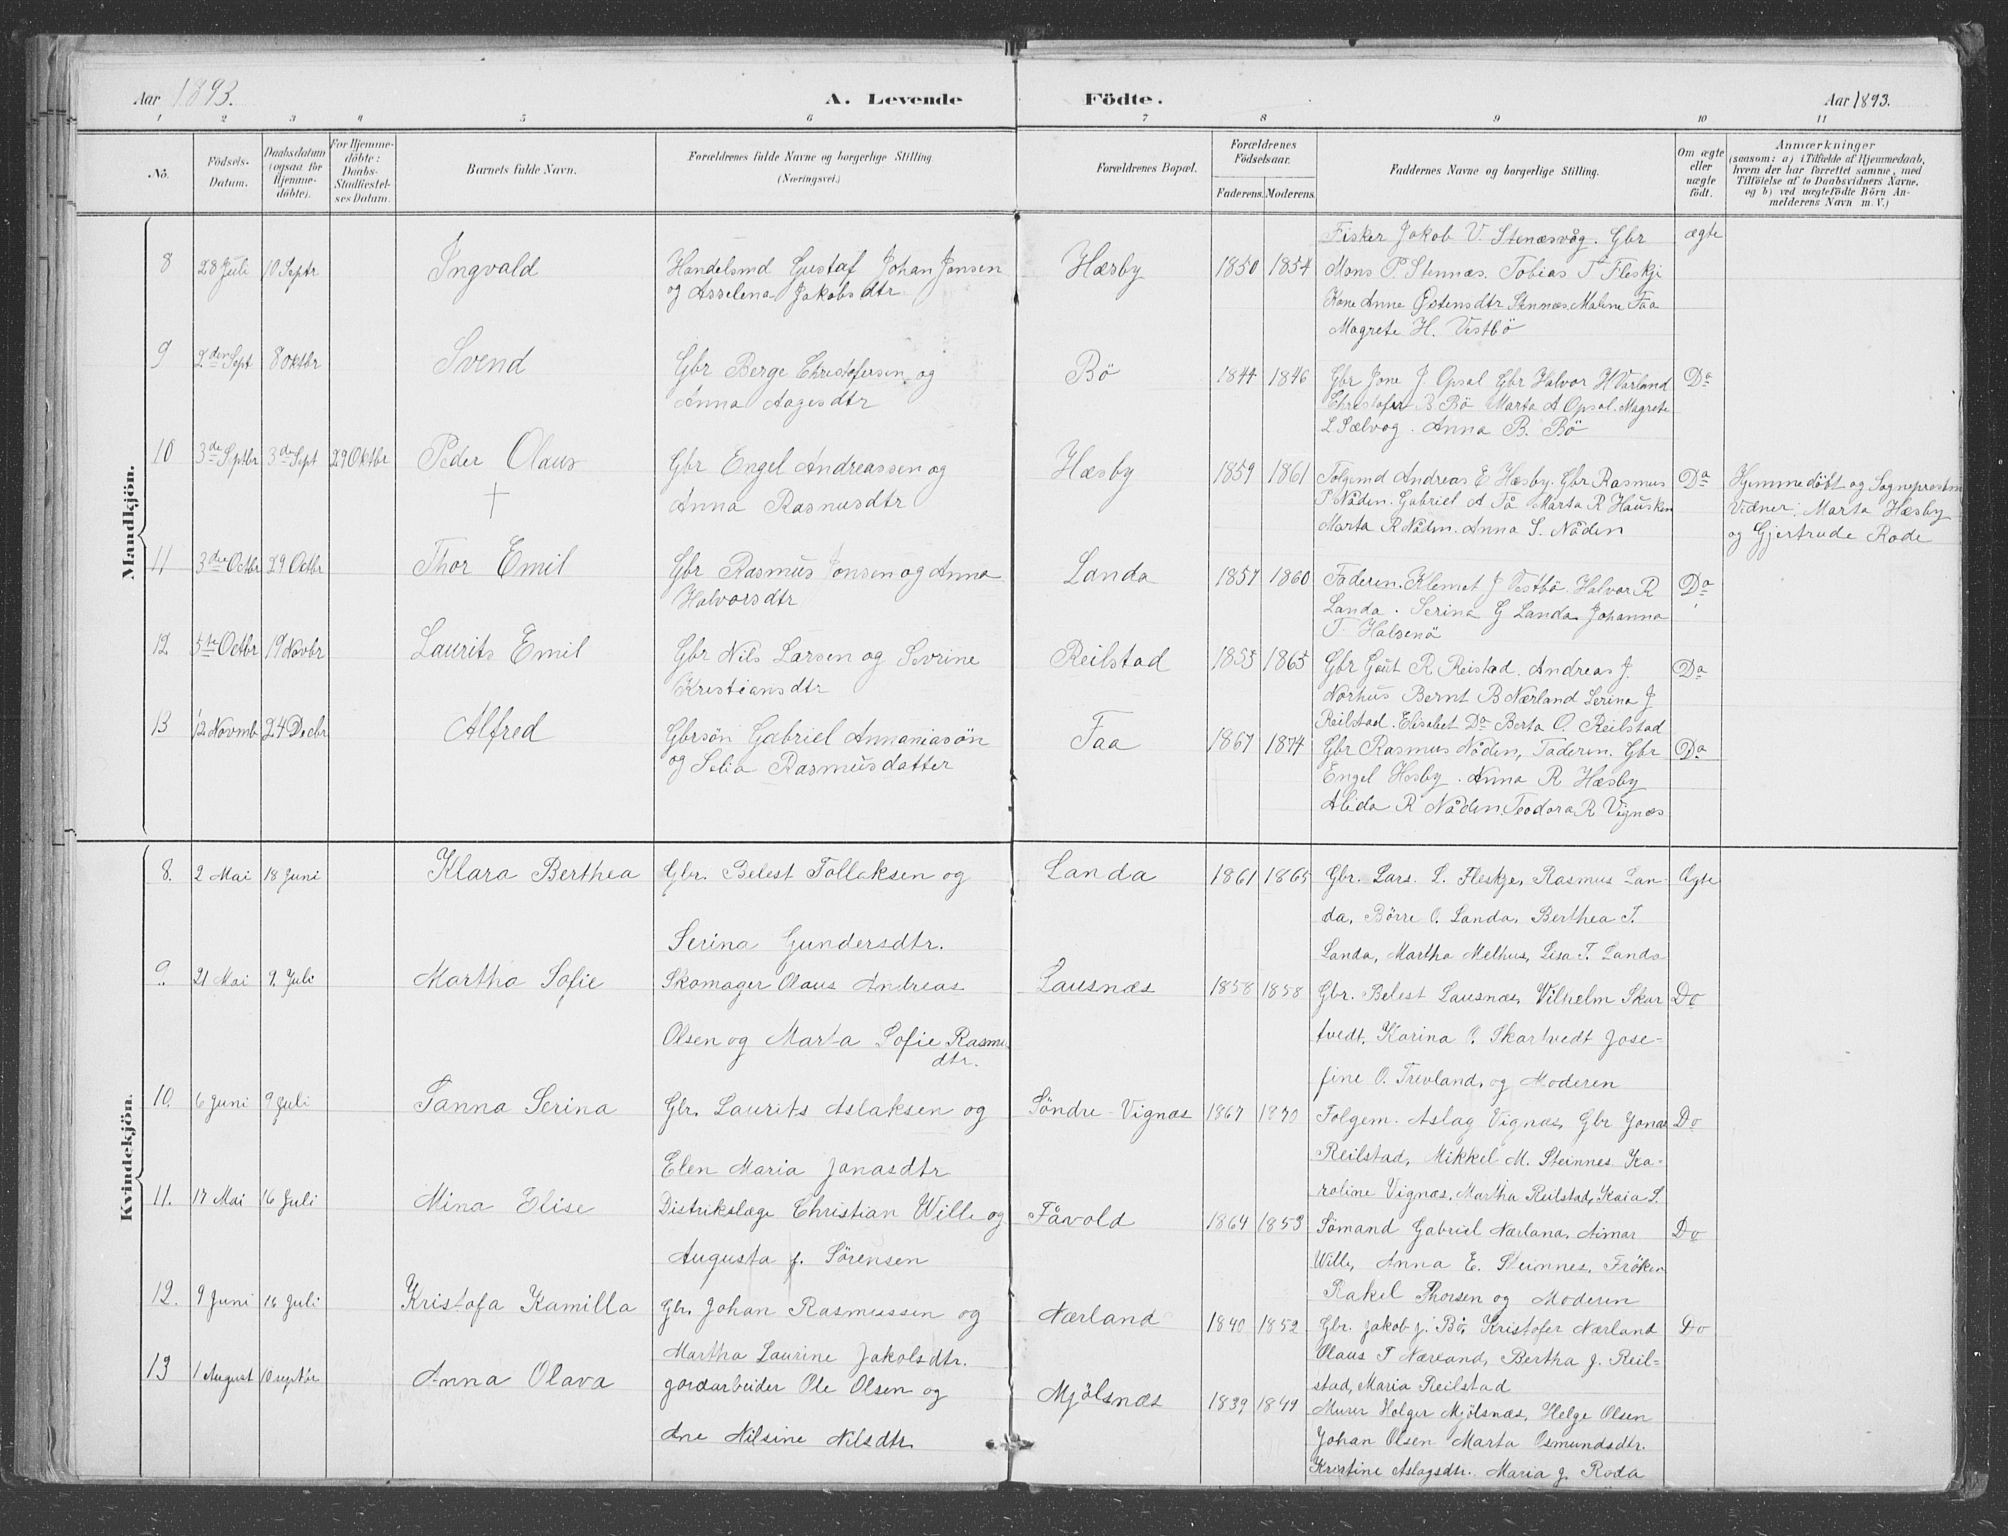 Aar 1893.
A. Levende Födte.
Aar 1893.
1 2 3 4 5 6 7 8 9 10 11
No.
Födsels-
Datum.
Daabsdatum
(ogsaa for
Hjemme-
döbte).
For Hjemme-
döbte:
Daabs-
Stadfæstel-
ses Datum.
Barnets fulde Navn.
Forældrenes fulde Navne og borgerlige Stilling
(Næringsvei.)
Forældrenes Bopæl.
Forældrenes
Födselsaar.
Faderens. Moderens.
Faddernes Navne og borgerlige Stilling.
Om ægte
eller
uægte
födt.
Anmærkninger
(saasom: a) i Tilfælde af Hjemmedaab,
hvem der har forrettet samme, med
Tilföielse af to Daabsvidners Navne,
og b) ved uægtefödte Börn An-
melderens Navn m. V.)
Mandkjön.
8 28 Juli 10 Septr Ingvald
Handelsmd Gustaf Johan Jensen
og Asselena Jakobsdtr
Hæsby 1850 1854
Fisker Jakob V. Stenæsvåg. Gbr
Mons P. Stennæs. Tobias T Fleskji
Kone Anne Östensdtr Stennæs. Malene Faa
Magrete H. Vestbö
ægte
9 2den Sept 8 oktbr Svend
Gbr Berge Christofersen og
Anna Aagesdtr
Bö 1844 1846
Gbr Jone J. Opsal Gbr Halvor H Varland
Christofer B Bö Marta A Opsal. Magrete
L Sælvog. Anna B. Bö
Do
10 3de Septbr 3de Sept 29 Oktbr Peder Olaus
†
Gbr Engel Andreassen og
Anna Rasmusdtr
Hæsby 1859 1861
Folgemd Andreas E Hæsby. Gbr Rasmus
P Nåden. Gabriel A Få Marta R Hausken
Marta R Nåden. Anna S. Nåden
Do
Hjemmedöbt og Sogneprestn
Vidner: Marta Hæsby
og Gjertrude Rode
11 3die Octbr 29 Octbr Thor Emil
Gbr Rasmus Jonsen og Anna
Halvorsdtr
Landa 1857 1860
Faderen. Klemet J Vestbö. Halvor R
Landa. Serina G Landa Johanna
T Halsenö
Do
12 5te Octbr 19 Novbr Laurits Emil
Gbr Nils Larsen og Sevrine
Kristiansdtr
Reilstad 1855 1865
Gbr Gaut R Reistad. Andreas J.
Norhus Bernt B Nærland Serina J
Reilstad. Elisabet Do Berta O. Reilstad
Do
13 12 Novmb 24 Decbr Alfred
Gbrsön Gabriel Annaniasön
og Selia Rasmusdatter
Faa 1867 1874
Gbr Rasmus Nåden, Faderen. Gbr
Engel Hesby. Anna R Hæsby
Alida R Nåden. Teodora R Vignæs
Do
Kvindekjön.
8. 2 Mai 18 Juni Klara Berthea
Gbr. Belest Tollaksen og
Serina Gundersdtr.
Landa 1861 1865
Gbr. Lars. L. Fleskje, Rasmus Lan-
da, Börre O. Landa, Berthea T.
Landa, Martha Melhus, Lisa T. Landa
Ægte
9. 21 Mai 9. Juli Martha Sofie
Skomager Olaus Andreas
Olsen og Marta Sofie Rasmus
dtr.
Lausnæs 1858 1858
Gbr. Belest Lausnæs, Vilhelm Skar
tvedt, Karina O. Skartvedt Jose-
fine O. Trevland, og Moderen
Do
10. 6 Juni 9 Juli Fanna Serina
Gbr. Laurits Aslaksen og
Elen Maria Jonasdtr
Söndre-Vignæs 1867 1870
Folgem. Aslag Vignæs, Gbr Jonas
Reilstad, Mikkel M. Steinnes Ka-
roline Vignæs, Martha Reilstad, Kaia S.
Do
11. 17 Mai 16 Juli Mina Elise
Distrikslæge Christian Wille og
Augusta f. Sörensen
Fåvold 1864 1853
Sömand Gabriel Nærland, Aimar
Wille, Anna E. Steinnes, Fröken
Rakel Thorsen og Moderen
Do
12. 9 Juni 16 Juli Kristofa Kamilla
Gbr. Johan Rasmussen og
Martha Laurine Jakobsdtr.
Nærland 1840 1852
Gbr. Jakob J. Bö, Kristofer Nærland
Olaus T Nærland, Bertha J. Reil-
stad, Maria Reilstad
Do
13 1 August 10 septbr Anna Olava
gaardarbeider Ole Olsen og
Ane Nilsine Nilsdtr
Mjölsnæs 1839 1849
Murer Holger Mjölsnæs, Helge Olsen
Johan Olsen Marta Osmundsdtr.
Kristine Aslagsdtr. Maria J. Roda